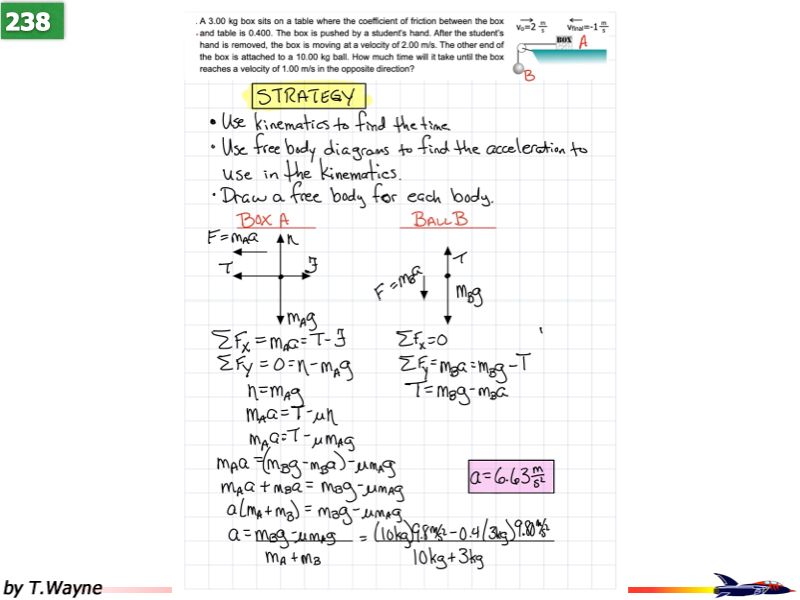 238
. A 3.00 kg box sits on a table where the coefficient of friction between the box
and table is 0.400. The box is pushed by a student's hand. After the student's
hand is removed, the box is moving at a velocity of 2.00 m/s. The other end of
the box is attached to a 10.00 kg ball. How much time will it take until the box
reaches a velocity of 1.00 m/s in the opposite direction?
v₀=2 m/s
v_final=-1 m/s
BOX A
B
STRATEGY
• Use kinematics to find the time
• Use free body diagrams to find the acceleration to
use in the kinematics.
• Draw a free body for each body.
BOX A
BALL B
F=m_A a
n
T
F
m_A g
T
F=m_B a
m_B g
ΣF_x = m_A a = T-F
ΣF_y = 0 = n-m_A g
n=m_A g
m_A a = T-μn
m_A a = T-μm_A g
m_A a = (m_B g-m_B a)-μm_A g
m_A a + m_B a = m_B g-μm_A g
a(m_A+m_B) = m_B g-μm_A g
a = (m_B g-μm_A g)/(m_A+m_B) = ((10kg)9.8 m/s²-0.4(3kg)9.80 m/s²)/(10kg+3kg)
ΣF_x=0
ΣF_y=m_B a=m_B g-T
T=m_B g-m_B a
a=6.63 m/s²
by T.Wayne